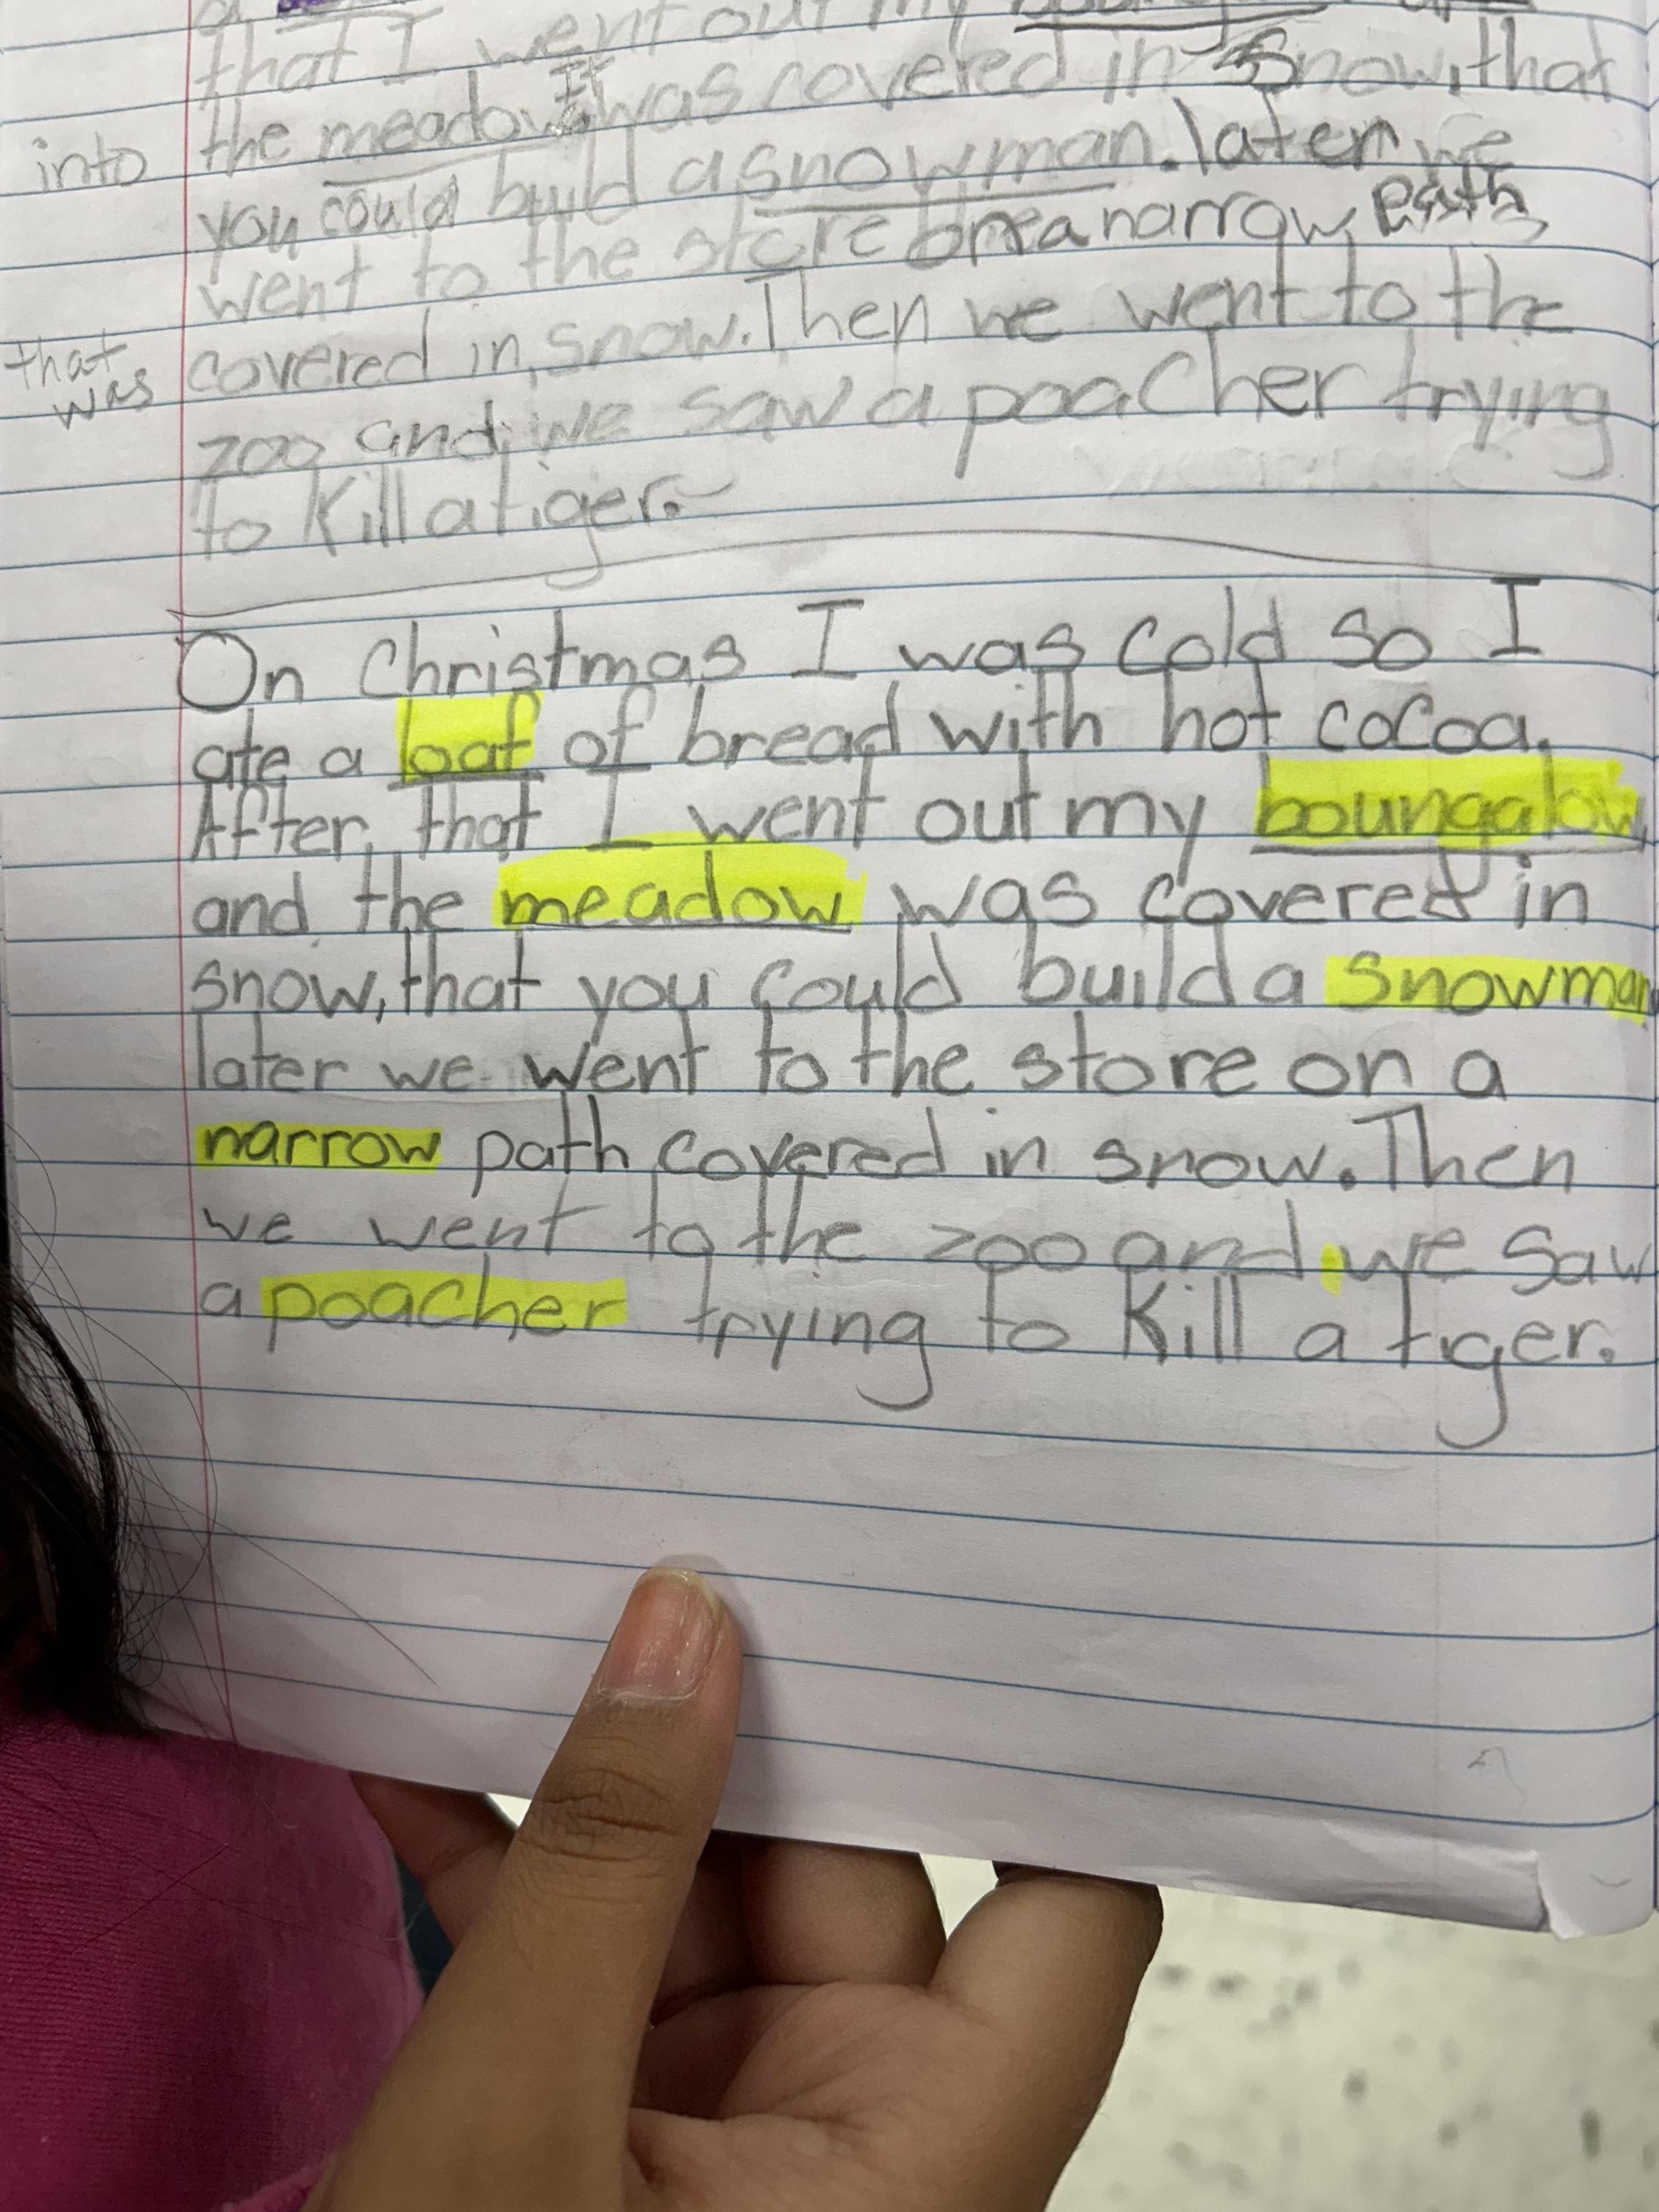 that I went out my
the meadow It was covered in Snow, that
into
you could build a snowman. later we
went to the store on a narrow path
that was
covered in snow. Then we went to the
zoo and we saw a poacher trying
to Kill a tiger.
On Christmas I was cold so I
ate a loaf of bread with hot cocoa.
After, that I went out my boungalow
and the meadow was covered in
snow, that you could build a snowman
later we went to the store on a
narrow path covered in snow. Then
we went to the zoo and we saw
a poacher trying to Kill a tiger.